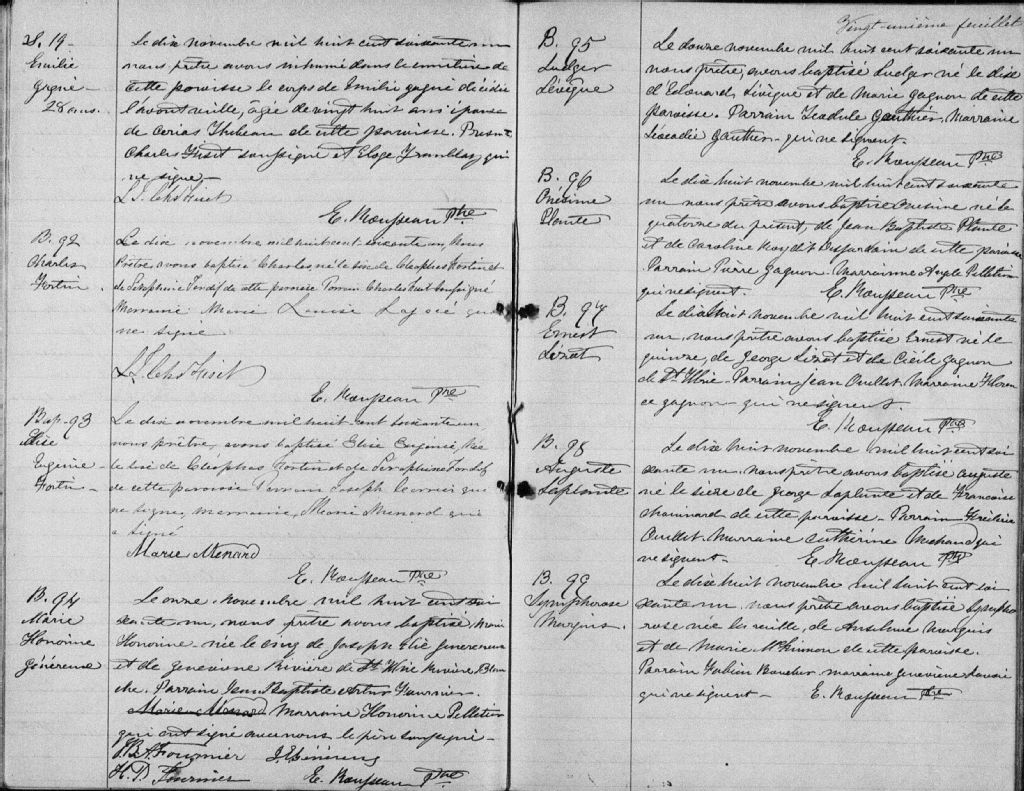 S. 19
Emilie
gagné
28 ans.
Le dix novembre mil huit cent soixante un
nous prêtre avons inhumé dans le cimetière de
cette paroisse le corps de Emilie gagné décédée
l'avant veille, âgée de vingt huit ans épouse
de Thibeau de cette paroisse. Présents
Charles Huot soussigné et Eloge Tremblay qui
ne signe
E. Rousseau Ptre
B. 92
Charles
Fortin
Le dix novembre mil huit cent soixante un, Nous
Prêtre, avons baptisé Charles né le six de Cléophas Fortin et
de cette paroisse Parrain Charles soussigné
Marraine Marie Louise Lajoie qui
ne signe
E. Rousseau Ptre
Bap. 93
Elise
Eugénie
Fortin
Le dix novembre mil huit cent soixante un
nous prêtre, avons baptisé Elise Eugénie, Née
le six de Cléophas Fortin et de Séraphine
de cette paroisse Parrain Joseph qui
ne signe, marraine, Marie Menard qui
a signé
Marie Menard
E. Rousseau Ptre
B. 94
Marie
Honorine
Généreux
Le onze novembre mil huit cent soi
xante un, nous prêtre avons baptisé, Marie
Honorine née le cinq de Joseph Elie Généreux
et de Geneviève Rivière de Rivière Blan
che. Parrain Jean Baptiste Artus Fournier.
Marie Menard Marraine Honorine Pelletier
qui ont signé avec nous le père soussigné
J.B.A. Fournier J.E. Généreux
H. P. Fournier E. Rousseau Ptre
Vingt-unième feuillet
B. 95
Ludger
Lévêque
Le douze novembre mil huit cent soixante un
nous prêtre, avons baptisé Ludger né le dix
d'Edouard Lévêque et de Marie Gagnon de cette
paroisse. Parrain Gauthier, Marraine
Léocadie Gauthier qui ne signent.
E. Rousseau Ptre
B. 96
Onésime
Plante
Le dix huit novembre mil huit cent soixante
un nous prêtre avons baptisé Onésime né le
quatorze du présent, de Jean Baptiste Plante
et de Caroline Roy dit Desjardain de cette paroisse
Parrain Pierre Gagnon. Marrainne Angèle Pelletier
qui ne signent. E. Rousseau Ptre
B. 97
Ernest
Lizot
Le dix huit novembre mil huit cent soixante
un, nous prêtre avons baptisé Ernest né le
quinze, de George Lizot et de Cécile Gagnon
de St Ulric. Parrain Jean Ouellet. Marraine Floren
ce Gagnon qui ne signent.
E. Rousseau Ptre
B. 98
Auguste
Laplante
Le dix huit novembre mil huit cent soi
xante un nous prêtre avons baptisé Auguste
né le seize de George Laplante et de Francoise
Chouinard de cette paroisse. Parrain
Ouellet. Marraine Catherine Michaud qui
ne signent. E. Rousseau Ptre
B. 99
Symphorose
Marquis.
Le dix huit novembre mil huit cent soi
xante un nous prêtre avons baptisé Sympho
rose née la veille, de Anselme Marquis
et de Marie de cette paroisse.
Parrain Fabien Boucher marraine Geneviève Savoie
qui ne signent E. Rousseau Ptre